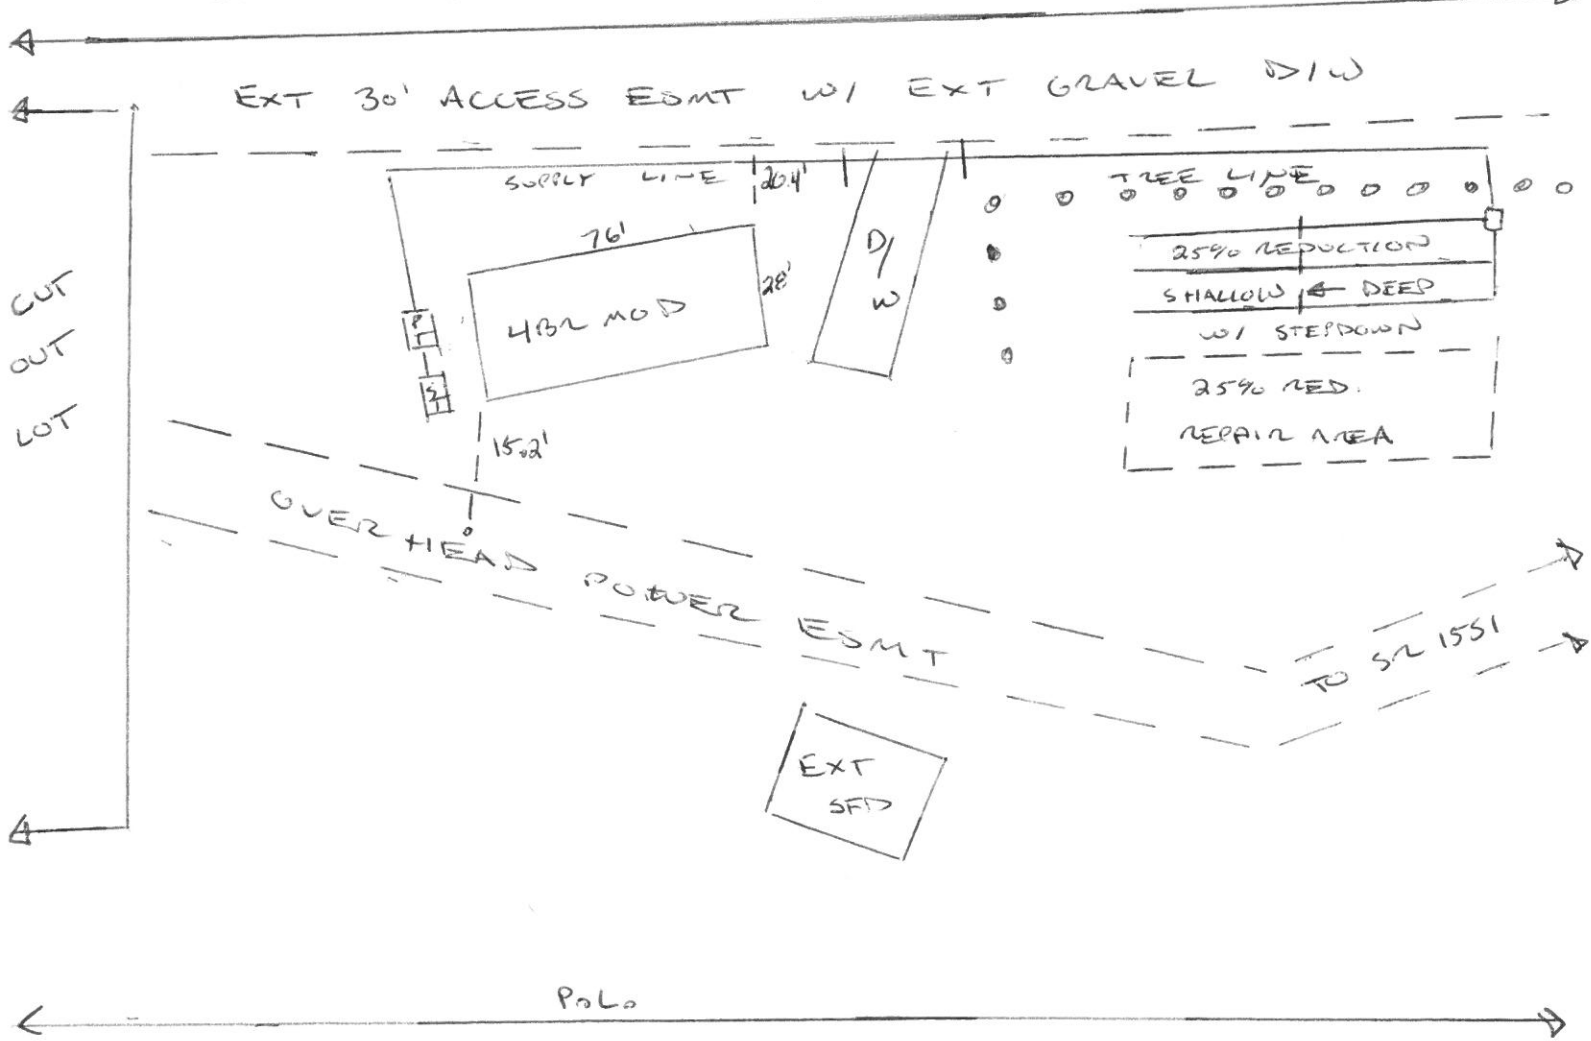 EXT 30' ACCESS ESMT W/ EXT GRAVEL D/W
SUPPLY LINE
20.4'
TREE LINE
76'
28'
4BR MOD
D/
W
25% REDUCTION
SHALLOW ← DEEP
W/ STEPDOWN
25% RED.
REPAIR AREA
PT
ST
CUT
OUT
LOT
15.2'
OVER HEAD POWER ESMT
TO SR 1551
EXT
SFD
P.L.